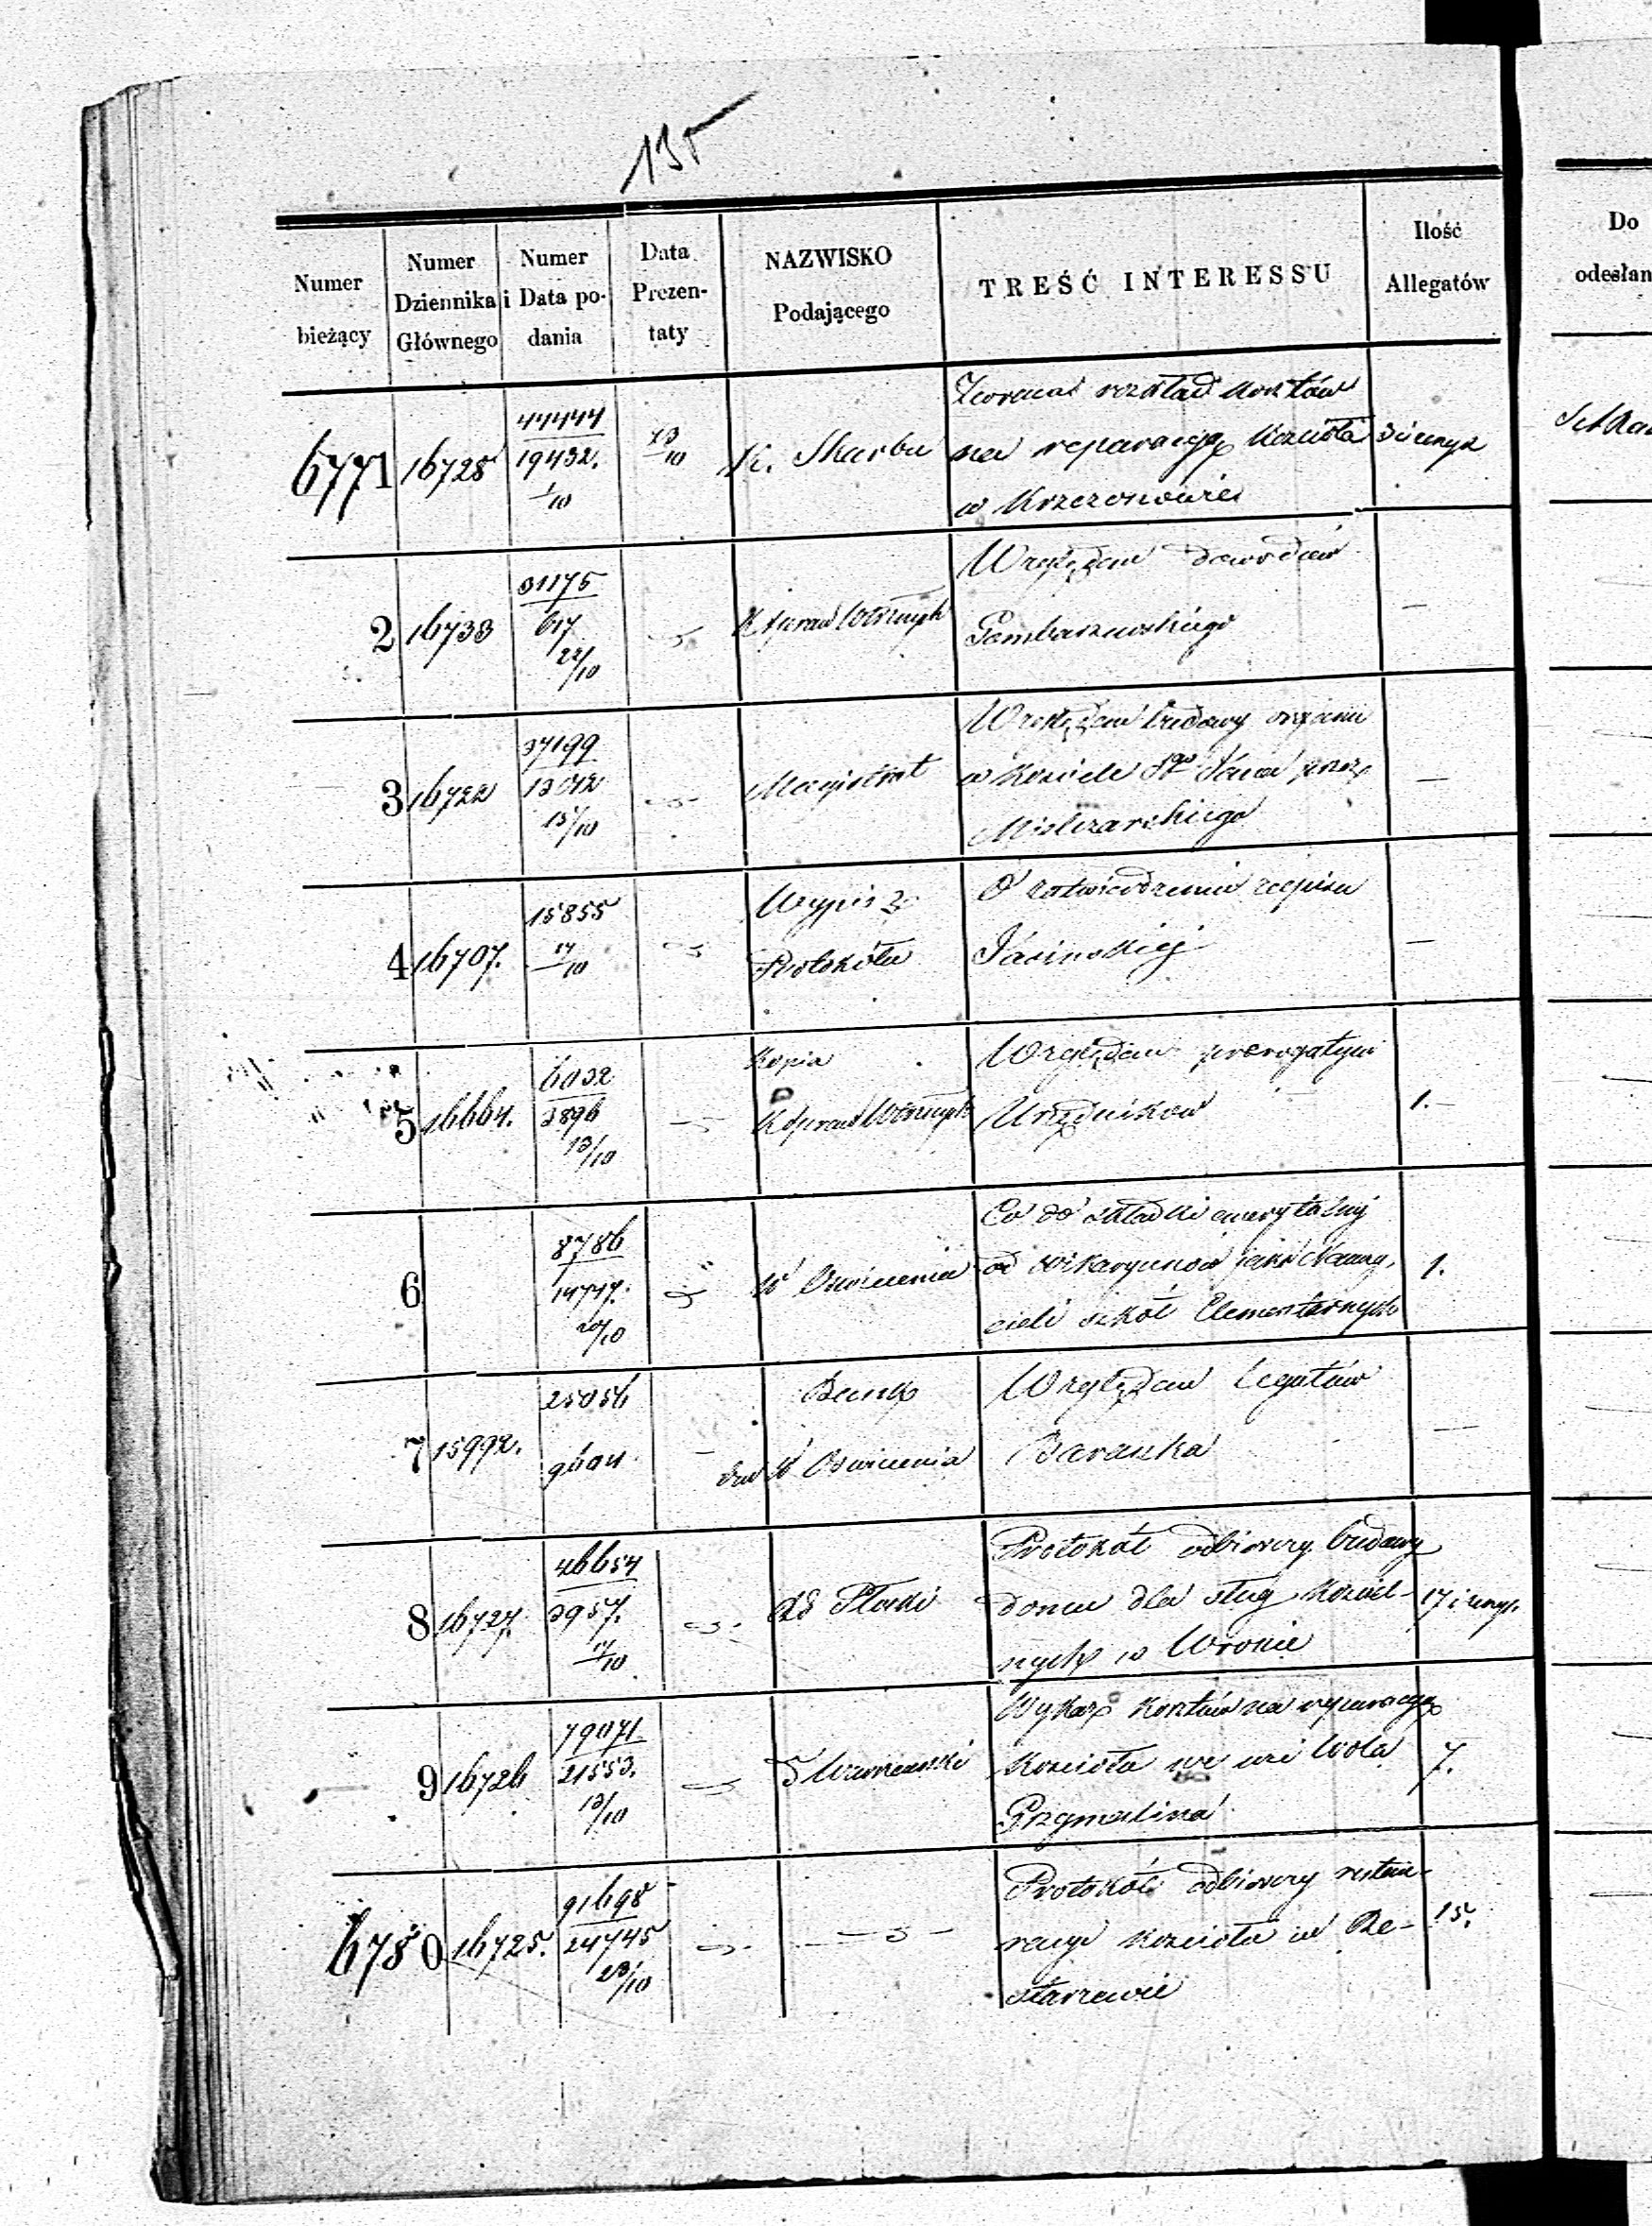 135
Numer bieżący
Numer Dziennika Głównego
Numer i Data podania
Data Prezen-taty
NAZWISKO Podającego
TREŚĆ INTERESSU
Ilość Allegatów
Do odesłan
6771 16728 44444 19432. 1/10 23/10 K. Skarbu
rozkład kosztów
na reparacyą Kościoła
w
3 i innych
2 16733 31175 617 22/10
Względem dowodów
3 16722 37199 13042 15/10 Magistrat
Względem budowy organu
w Kościele Sgo Jana przez
4 16707. 15855 17/10 Wypis z
Protokółu
O zatwierdzeniu zapisu
Jasińskiej
5 16664. 6032 3896 13/10 Kopia
Względem prerogatyw
Urzędników
1.
6 8786 14747. 20/10 W Oświecenia
Co do składki emerytalnej
od wikaryuszów jako Nauczy-
cieli szkół Elementarnych
1.
7 15992. 25056 9604. Bank
dw W Oświecenia
Względem legatów
Baraszka
8 16727. 46654 3957. 17/10
Protokół odbiorczy budowy
domu dla sług Kościel-
nych w Wronie
17 i inny.
9 16726 79071. 21553. 13/10 G Warszawski
Wykaz kosztów na reparacyą
Kościoła we wsi Wola
7.
6780 16725. 91698 24745 23/10
Protokół odbiorczy restau-
racyi Kościoła w Be-
15.